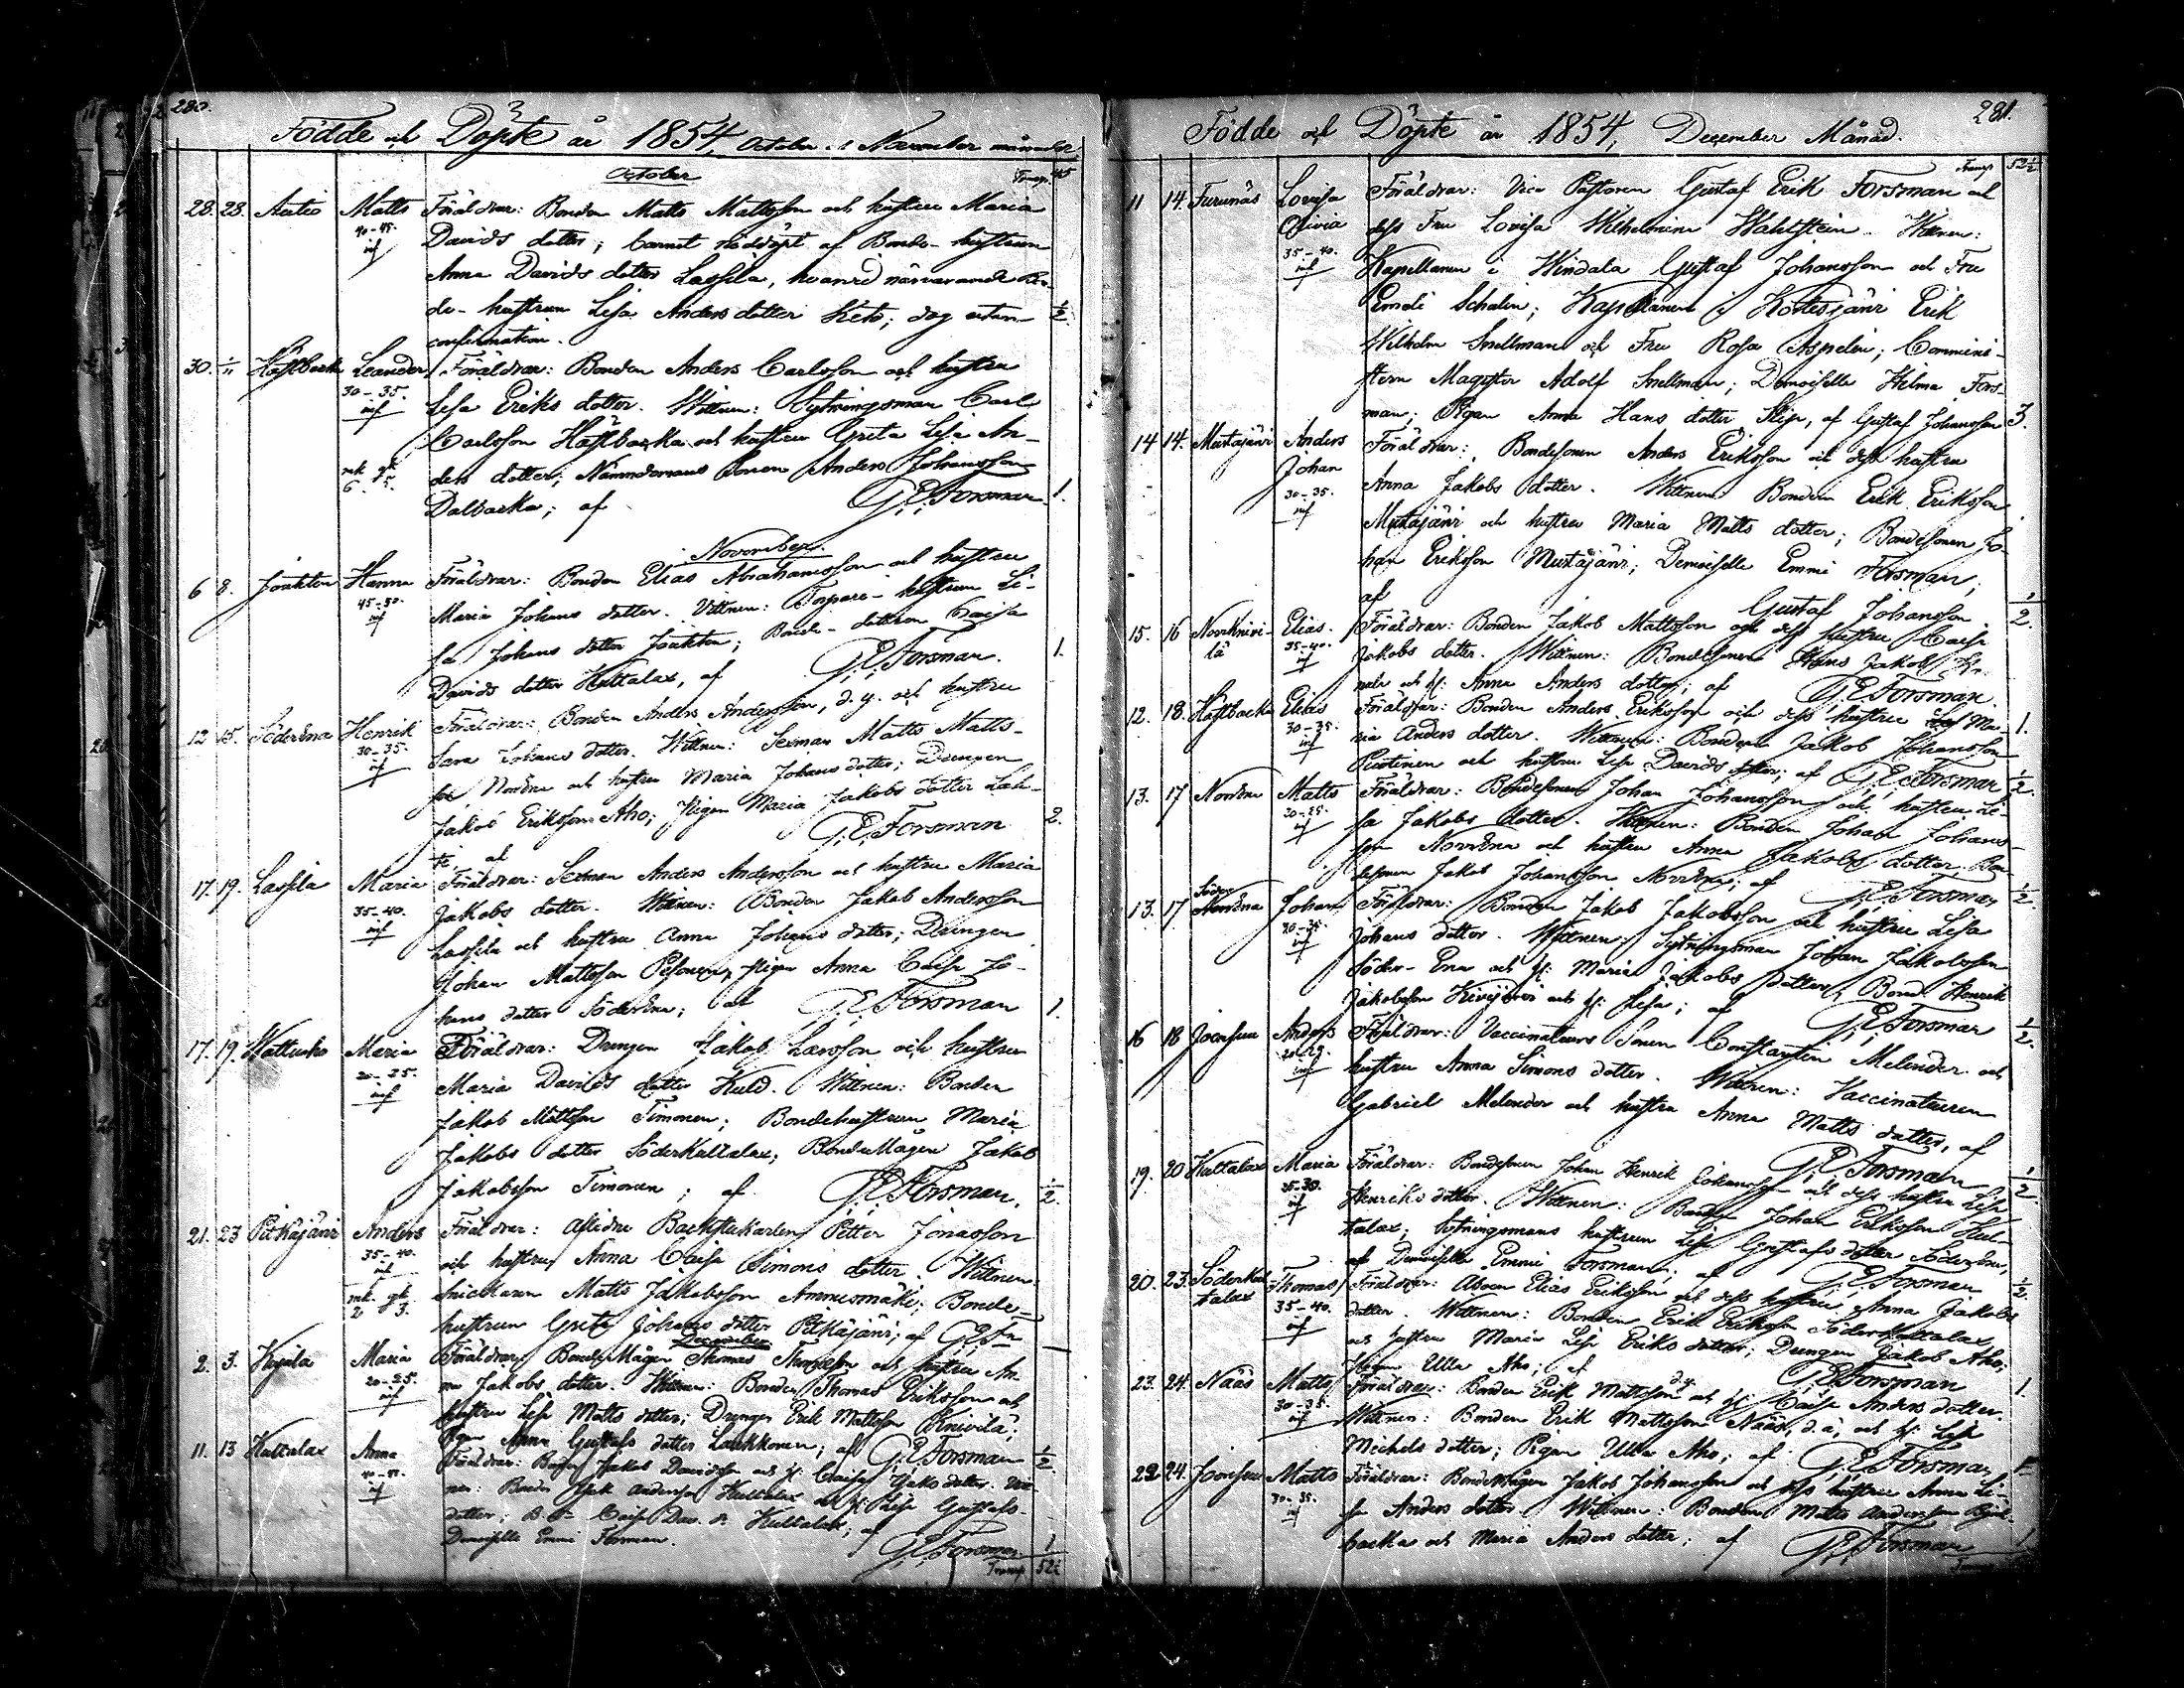 280.
Födde och Döpte år 1854, October och November månader.
October
Transp. 45
28. 28. Autio Matts Föräldrar: Bonden Matts Mattsson och hustru Maria
40-45. Davids dotter; Barnet nöddöpt af Bonde-hustrun
inf Anna Davids dotter Lassila, hvarvid närvarande Bon-
de-hustrun Lisa Anders dotter Keto; dog utan 1/2.
confirmation.
30. 1/11 Häslbacka Leander Föräldrar: Bonden Anders Carlsson och hustru
30-35. Lisa Eriks dotter. Wittnen: Sytningsman Carl
inf Carlsson Häslbacka och hustru Greta Lisa An-
mk. gk. ders dotter; Nämndemans Sonen Anders Johansson
6. 5. Dalbacka; af G. E. Forsman 1.
November.
6 8. Jonkton Hanna Föräldrar: Bonden Elias Abrahamsson och hustru
45-50. Maria Johans dotter. Vittnen: Torpare-hustrun Li-
inf sa Johans dotter Jonkton; Bonde-dottren Caisa
Davids dotter Kultalax, af G. E. Forsman. 1.
12 15. Söderena Henrik Föräldrar: Bonden Anders Andersson, d. y. och hustru
30-35. Sara Johans dotter. Wittnen: Sexman Matts Matts-
inf son Norrena och hustru Maria Johans dotter; Drengen
Jakob Eriksson Aho; Pigan Maria Jakobs dotter Lah-
ti, af G. E. Forsman 2.
17. 19. Lassila Maria Föräldrar: Sexman Anders Andersson och hustru Maria
35-40. Jakobs dotter. Wittnen: Bonden Jakob Andersson
inf Lassila och hustru Anna Johans dotter; Drengen
Johan Mattsson Pesonen, Pigan Anna Caisa Jo-
hans dotter Söderena; af G. E. Forsman 1.
17. 19. Maria Föräldrar: Drengen Jakob Larsson och hustru
20-25. Maria Davids dotter Kuld. Wittnen: Bonden
inf Jakob Mattsson Timonen; Bondehustrun Maria
Jakobs dotter Söderkultalax; Bondemågen Jakob
Jakobsson Timonen; af G. E. Forsman. 1/2.
21. 23 Pitkäjärvi Anders Föräldrar: aflidne Backstukarlen Petter Jonasson
35-40. och hustru Anna Caisa Simons dotter. Wittnen:
inf Snickaren Matts Jakobsson Ammesmäki; Bonde-
mk. gk. hustrun Greta Johans dotter Pitkäjärvi; af G. E. Fn
2 3.
December
2. 3. Kynila Maria Föräldrar: Bondemågen Thomas Thomasson och hustru An-
20-25. na Jakobs dotter. Wittnen: Bonden Thomas Eriksson och
inf hustru Lisa Matts dotter; Drengen Erik Mattsson Knivilä;
Pigan Anna Gustafs dotter Laukkonen; af G. E. Forsman 1/2.
11. 13 Kultalax Anna Föräldrar: Bonden Jakob Davidsson och h: Caisa Jakobs dotter. Vitt-
inf nen: Bonden Andersson Kultalax och h: Caisa Gustafs-
dotter; Caisa Dav. dr Kultalax; af
Demoiselle Emmi Forsman. G. E. Forsman 1
Transp 52 1/2
281.
Födde och Döpte år 1854, December Månad.
Transp 52 1/2
11 14. Furunäs Lovisa Föräldrar: Vice Pastoren Gustaf Erik Forsman och
Olivia dess Fru Lovisa Wilhelmina Wahlstein. Wittnen:
35-40. Kapellanen i Windala Gustaf Johansson och Fru
inf Emeli Schalin; Kapellanen i Kortesjärvi Erik
Wilhelm Snellman och Fru Rosa Aspelin; Commini-
stern Magister Adolf Snellman; Demoiselle Hilma Fors-
man; Pigan Anna Hans dotter Slip, af Gustaf Johansson 3.
14 14. Mustajärvi Anders Föräldrar: Bondesonen Anders Eriksson och dess hustru
Johan Anna Jakobs dotter. Wittnen: Bonden Erik Eriksson
30-35. Mustajärvi och hustru Maria Matts dotter; Bondesonen Jo-
inf han Eriksson Mustajärvi; Demoiselle Emmi Forsman;
af Gustaf Johansson 1/2.
15. 16 Norrknivi- Elias. Föräldrar: Bonden Jakob Mattsson och dess hustru Caisa
lä 35-40. Jakobs dotter. Wittnen: Bondesonen Hans Jakob
inf och h: Anna Anders dotter; af G. E. Forsman. 1.
12. 18. Häslbacka Elias Föräldrar: Bonden Anders Eriksson och dess hustru Ma-
30-35. ria Anders dotter. Wittnen: Bonden Jakob Johansson
inf och hustru Lisa Davids dotter; af G. E. Forsman 1/2.
13. 17 Norrena Matts Föräldrar: Bondesonen Johan Johansson och hustru Li-
20-25. sa Jakobs dotter. Wittnen: Bonden Johan Johans-
inf son Norrena och hustru Anna Jakobs dotter, Bon-
desonen Jakob Johansson Norrena; af G. E. Forsman 1/2.
13. 17 Söder Johan Föräldrar: Bonden Jakob Jakobsson och hustru Lisa
inf Johans dotter. Wittnen: Sytningsman Johan Jakobsson
Söder-Ena och h: Maria Jakobs dotter, Bond. Henrik
Jakobsson Kivijärvi och h: Lisa; af G. E. Forsman 1/2.
16 18 Joensuu Anders Föräldrar: Vaccinateurs Sonen Constantin Melender och
inf hustru Anna Simons dotter. Wittnen: Vaccinateuren
Gabriel Melender och hustru Anna Matts dotter, af
G. E. Forsman 1/2.
19. 20 Kultalax Maria Föräldrar: Bondesonen Johan Henrik Johansson och dess hustru Lisa
25-30. Henriks dotter. Wittnen: Bonden Johan Eriksson Kul-
inf talax; Sytningsmans hustrun Lisa Gustafs dotter Söderena,
af Demoiselle Emmi Forsman; af G. E. Forsman 1/2.
20. 23. Söderkul- Thomas Föräldrar: Åboen Elias Eriksson och dess hustru Anna Jakobs
talax 35-40. dotter. Wittnen: Bonden Erik Eriksson Söderkultalax
inf och hustru Maria Lisa Eriks dotter; Drengen Jakob Aho;
Pigan Ulla Aho; af G. E. Forsman 1.
23. 24. Nääs Matts Föräldrar: Bonden Erik Mattsson d.y. och h: Caisa Anders dotter.
30-35. Wittnen: Bonden Erik Mattsson Nääs, d.ä. och h: Lisa
inf Michels dotter; Pigan Ulla Aho; af G. E. Forsman
22 24. Joensuu Matts Föräldrar: Bondemågen Jakob Johansson och dess hustru Anna Li-
30-35. sa Anders dotter. Wittnen: Bonden Matts Andersson
inf backa och Maria Anders dotter; af G. E. Forsman 1